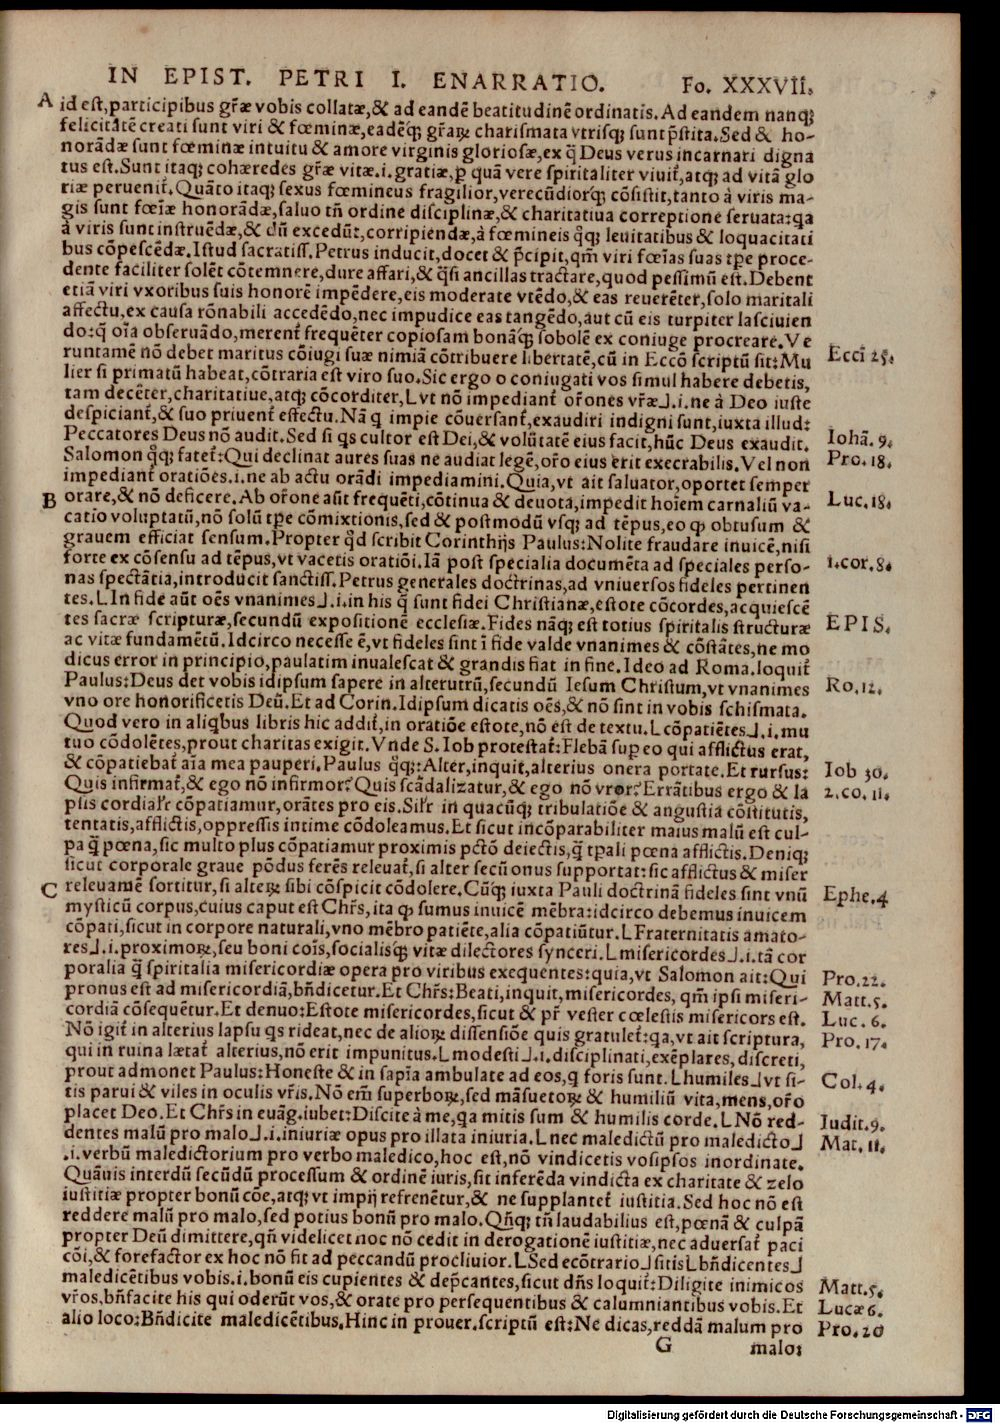 IN EPIST. PETRI I. ENARRATIO. Fo. XXXVII.
A id est, participibus gr̃æ vobis collatæ, & ad eandē beatitudinē ordinatis. Ad eandem nanqꝫ
felicitātē creati sunt viri & fœminæ, eadēqꝫ gr̃aꝝ charismata vtrisqꝫ sunt p̄stita. Sed & ho-
norādæ sunt fœminæ intuitu & amore virginis gloriosæ, ex q̄ Deus verus incarnari digna
tus est. Sunt itaqꝫ cohæredes gr̃æ vitæ .i. gratiæ, ꝑ quā vere spiritaliter viuit̃, atqꝫ ad vitā glo
riæ peruenit̃. Quāto itaqꝫ sexus fœmineus fragilior, verecūdiorqꝫ cōsistit, tanto à viris ma-
gis sunt fœīæ honorādæ, saluo tñ ordine disciplinæ, & charitatiua correptione seruata: qa
à viris sunt instruēdæ, & dū excedūt, corripiendæ, à fœmineis q̄qꝫ leuitatibus & loquacitati
bus cōpescēdæ. Istud sacratiss. Petrus inducit, docet & p̄cipit, qm̄ viri fœīas suas tꝑe proce-
dente faciliter solēt cōtemnere, dure affari, & q̄si ancillas tractare, quod pessimū est. Debent
etiā viri vxoribus suis honorē impēdere, eis moderate vtēdo, & eas reuerēter, solo maritali
affectu, ex causa rōnabili accedēdo, nec impudice eas tangēdo, aut cū eis turpiter lasciuien
do: q̄ oīa obseruādo, merent̃ frequēter copiosam bonāqꝫ sobolē ex coniuge procreare. Ve
runtamē nō debet maritus cōiugi suæ nimiā cōtribuere libertatē, cū in Eccō scriptū sit: Mu Ecci 25.
lier si primatū habeat, cōtraria est viro suo. Sic ergo o coniugati vos simul habere debetis,
tam decēter, charitatiue, atqꝫ cōcorditer, L vt nō impediant̃ or̃ones vr̃æ ⅃ .i. ne à Deo iuste
despiciant̃, & suo priuent̃ effectu. Nā q impie cōuersant̃, exaudiri indigni sunt, iuxta illud:
Peccatores Deus nō audit. Sed si qs cultor est Dei, & volūtatē eius facit, hūc Deus exaudit. Iohā. 9.
Salomon q̄qꝫ fatet̃: Qui declinat aures suas ne audiat legē, or̃o eius erit execrabilis. Vel non Pro. 18.
impediant̃ oratiōes .i. ne ab actu orādi impediamini. Quia, vt ait saluator, oportet semper
B orare, & nō deficere. Ab or̃one aūt frequēti, cōtinua & deuota, impedit hoīem carnaliū va- Luc. 18.
catio voluptatū, nō solū tꝑe cōmixtionis, sed & postmodū vsqꝫ ad tēpus, eo ꝙ obtusum &
grauem efficiat sensum. Propter q̄d scribit Corinthijs Paulus: Nolite fraudare inuicē, nisi
forte ex cōsensu ad tēpus, vt vacetis oratiōi. Iā post specialia documēta ad speciales perso- 1. cor. 8.
nas spectātia, introducit sanctiss. Petrus generales doctrinas, ad vniuersos fideles pertinen
tes. L In fide aūt oēs vnanimes ⅃ .i. in his q̄ sunt fidei Christianæ, estote cōcordes, acquiescē
tes sacræ scripturæ, secundū expositionē ecclesiæ. Fides nāqꝫ est totius spiritalis structuræ EPIS.
ac vitæ fundamētū. Idcirco necesse ē, vt fideles sint ī fide valde vnanimes & cōstātes, ne mo
dicus error in principio, paulatim inualescat & grandis fiat in fine. Ideo ad Roma. loquit̃
Paulus: Deus det vobis idipsum sapere in alterutrū, secundū Iesum Christum, vt vnanimes Ro. 12.
vno ore honorificetis Deū. Et ad Corin. Idipsum dicatis oēs, & nō sint in vobis schismata.
Quod vero in aliqbus libris hic addit̃, in oratiōe estote, nō est de textu. L cōpatiētes ⅃ .i. mu
tuo cōdolētes, prout charitas exigit. Vnde S. Iob protestat̃: Flebā suꝑ eo qui afflictus erat,
& cōpatiebat̃ aīa mea pauperi. Paulus q̄qꝫ: Alter, inquit, alterius onera portate. Et rursus: Iob 30.
Quis infirmat̃, & ego nō infirmor? Quis scādalizatur, & ego nō vror? Errātibus ergo & la 2. co. 11.
psis cordial̃r cōpatiamur, orātes pro eis. Sil̃r in quacūqꝫ tribulatiōe & angustia cōstitutis,
tentatis, afflictis, oppressis intime cōdoleamus. Et sicut incōparabiliter maius malū est cul-
pa q̄ pœna, sic multo plus cōpatiamur proximis pctō deiectis, q̄ tꝑali pœna afflictis. Deniqꝫ
sicut corporale graue pōdus ferēs releuat̃, si alter secū onus supportat: sic afflictus & miser
C releuamē sortitur, si alteꝝ sibi cōspicit cōdolere. Cūqꝫ iuxta Pauli doctrinā fideles sint vnū Ephe. 4
mysticū corpus, cuius caput est Chr̃s, ita ꝙ sumus inuicē mēbra: idcirco debemus inuicem
cōpati, sicut in corpore naturali, vno mēbro patiēte, alia cōpatiūtur. L Fraternitatis amato-
res ⅃ .i. proximoꝝ, seu boni coīs, socialisqꝫ vitæ dilectores synceri. L misericordes ⅃ .i. tā cor
poralia q̄ spiritalia misericordiæ opera pro viribus exequentes: quia, vt Salomon ait: Qui Pro. 22.
pronus est ad misericordiā, bn̄dicetur. Et Chr̃s: Beati, inquit, misericordes, qm̄ ipsi miseri- Matt. 5.
cordiā cōsequētur. Et denuo: Estote misericordes, sicut & pr̄ vester cœlestis misericors est. Luc. 6.
Nō igit̃ in alterius lapsu qs rideat, nec de alioꝝ dissensiōe quis gratulet̃: qa, vt ait scriptura, Pro. 17.
qui in ruina lætat̃ alterius, nō erit impunitus. L modesti ⅃ .i. disciplinati, exēplares, discreti,
prout admonet Paulus: Honeste & in sapīa ambulate ad eos, q foris sunt. L humiles ⅃ vt si- Col. 4.
tis parui & viles in oculis vr̃is. Nō em̄ superboꝝ, sed māsuetoꝝ & humiliū vita, mens, or̃o
placet Deo. Et Chr̃s in euāg. iubet: Discite à me, qa mitis sum & humilis corde. L Nō red- Iudit. 9.
dentes malū pro malo ⅃ .i. iniuriæ opus pro illata iniuria. L nec maledictū pro maledicto ⅃ Mat. 11.
.i. verbū maledictorium pro verbo maledico, hoc est, nō vindicetis vosipsos inordinate.
Quāuis interdū secūdū processum & ordinē iuris, sit inferēda vindicta ex charitate & zelo
iustitiæ propter bonū cōe, atqꝫ vt impij refrenētur, & ne supplantet̃ iustitia. Sed hoc nō est
reddere malū pro malo, sed potius bonū pro malo. Qn̄qꝫ tñ laudabilius est, pœnā & culpā
propter Deū dimittere, qn̄ videlicet hoc nō cedit in derogationē iustitiæ, nec aduersat̃ paci
cōi, & forefactor ex hoc nō fit ad peccandū procliuior. L Sed ecōtrario ⅃ sitis L bn̄dicentes ⅃
maledicētibus vobis .i. bonū eis cupientes & dep̄cantes, sicut dn̄s loquit̃: Diligite inimicos Matt. 5.
vr̃os, bn̄facite his qui oderūt vos, & orate pro persequentibus & calumniantibus vobis. Et Lucæ 6.
alio loco: Bn̄dicite maledicētibus. Hinc in prouer. scriptū est: Ne dicas, reddā malum pro Pro. 20
G malo:
Digitalisierung gefördert durch die Deutsche Forschungsgemeinschaft - DFG